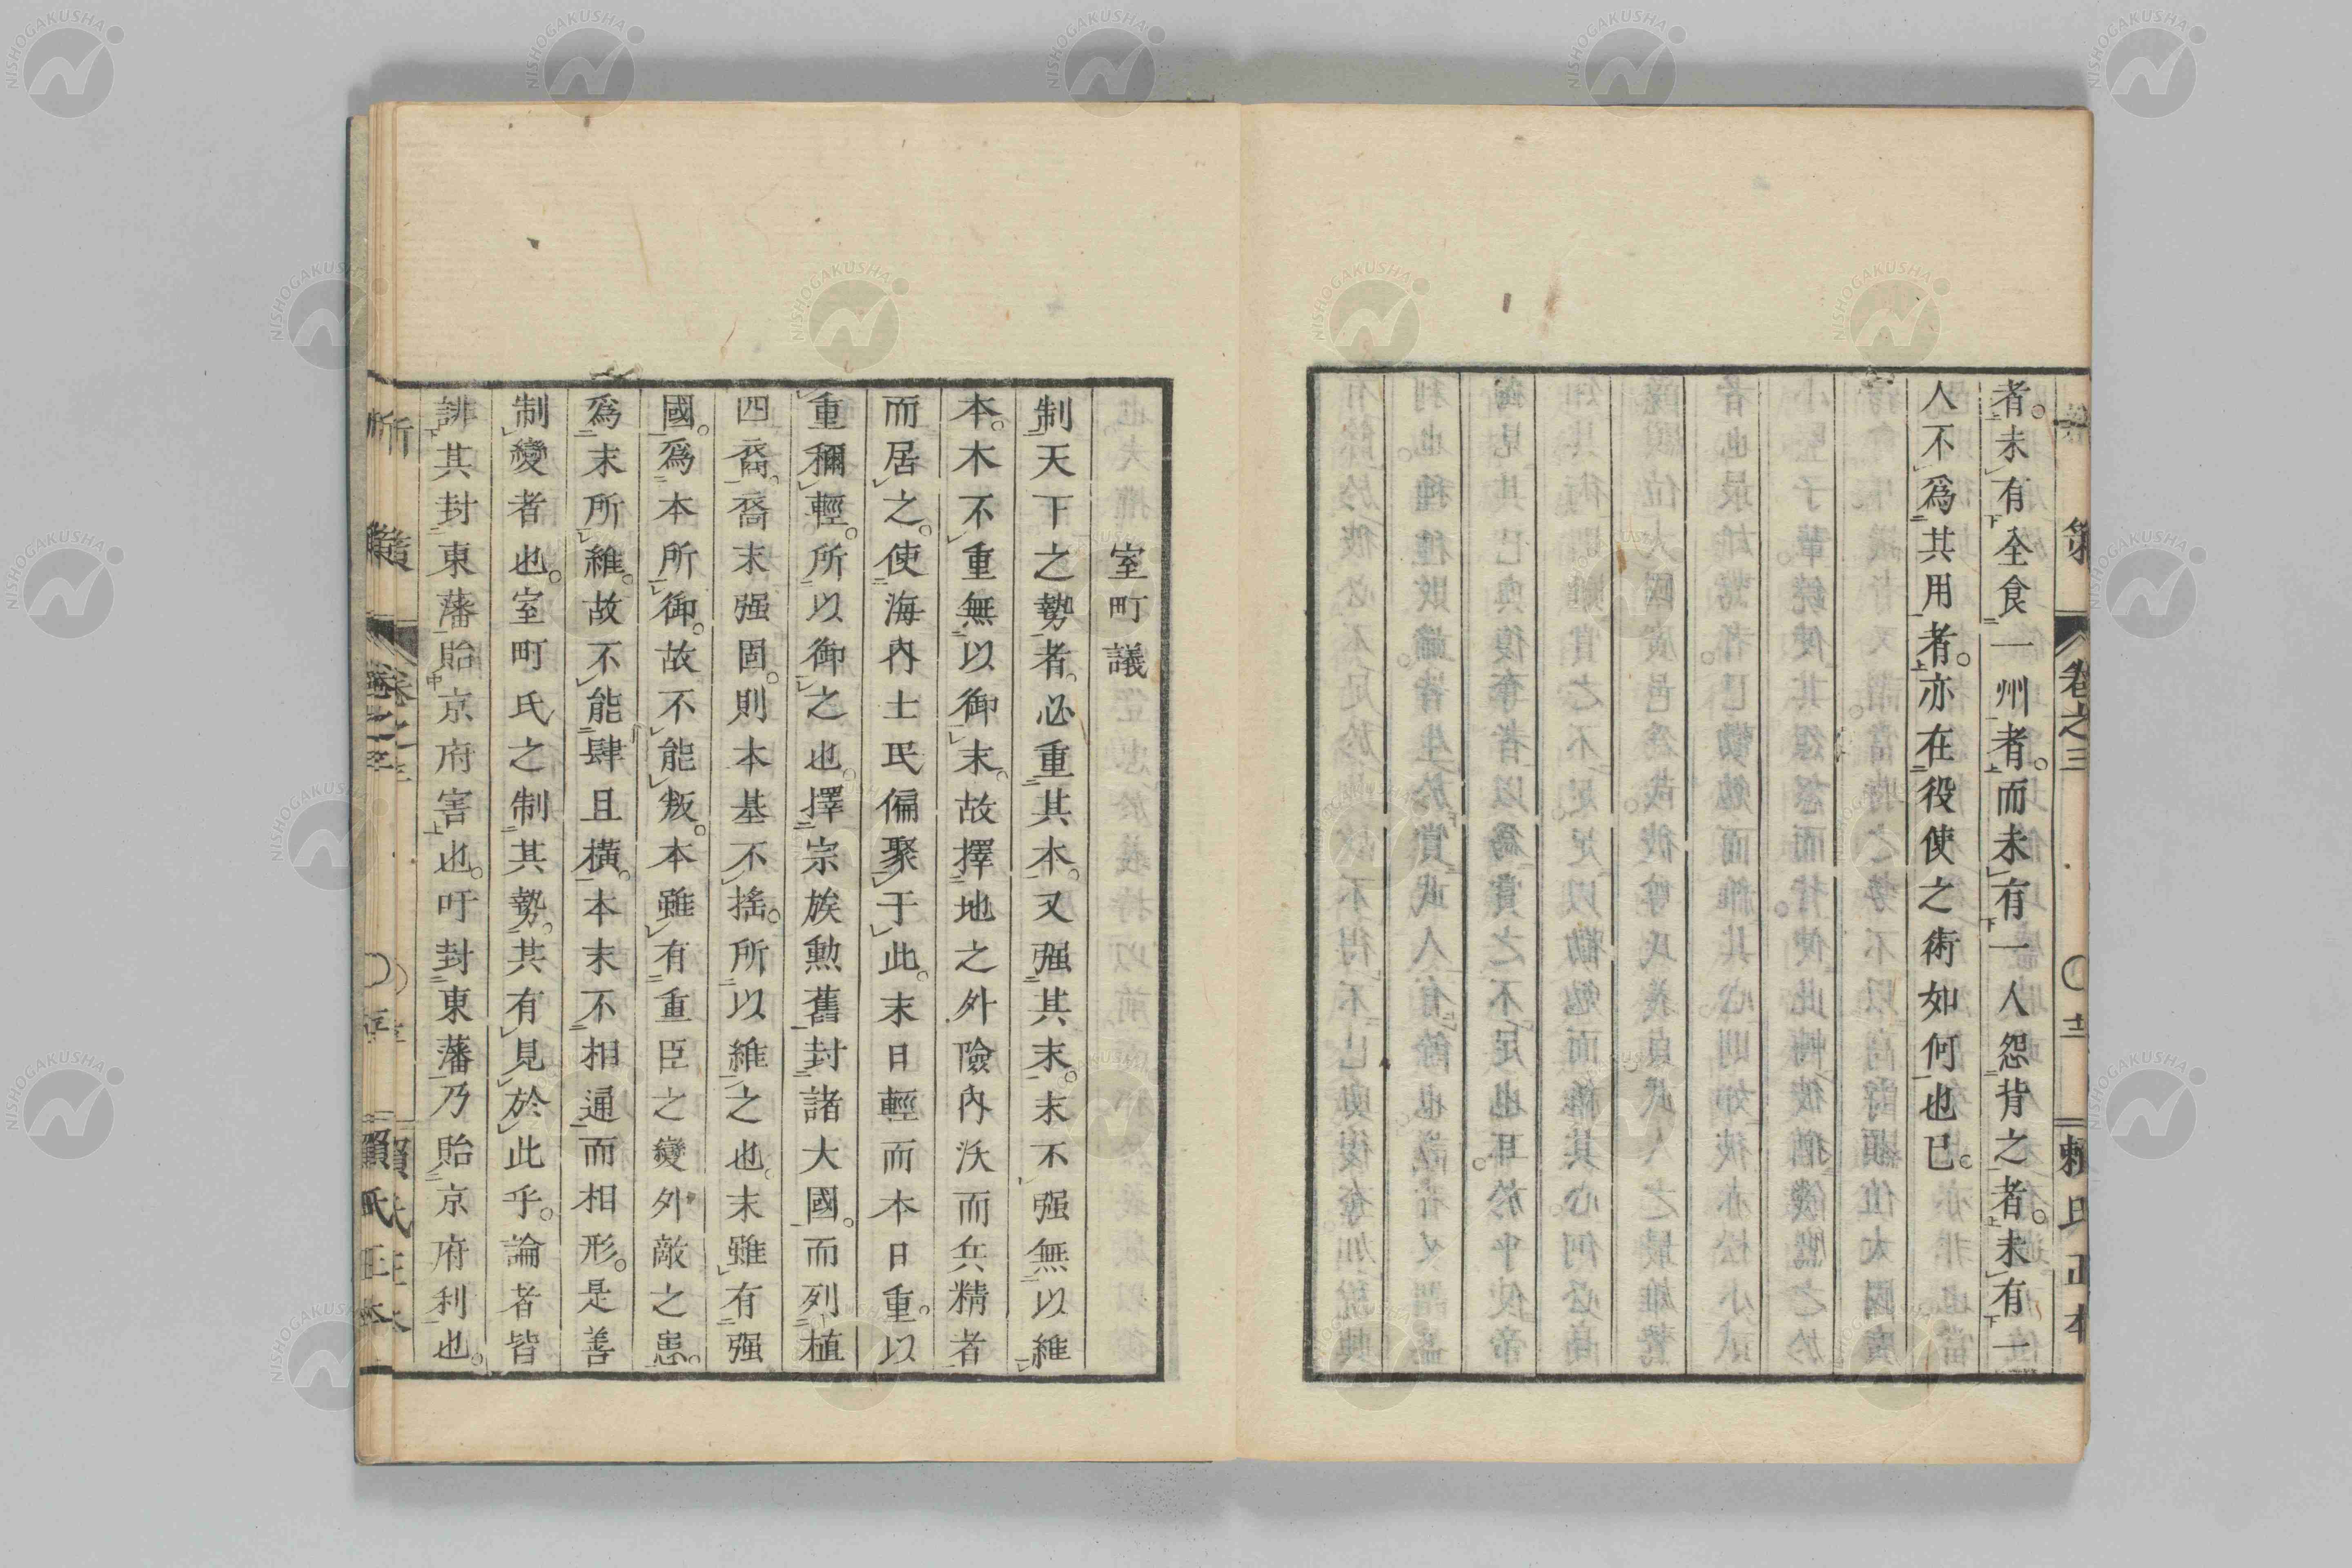 策　卷之三　〇十二　賴氏正本
者。未有全食一州者。而未有一人怨背之者。未有一
人不爲其用者。亦在役使之術如何也已。
室町議
制天下之勢者。必重其本。又强其末。末不强無以維
本。本不重無以御末。故擇地之外險內沃而兵精者
而居之。使海內士民偏聚于此。末日輕而本日重。以
重稱輕。所以御之也。擇宗族勲舊封諸大國。而列植
四裔。裔末强固。則本基不搖。所以維之也。末雖有强
國。爲本所御。故不能叛。本雖有重臣之變外敵之患。
爲末所維。故不能肆且橫。本末不相通而相形。是善
制變者也。室町氏之制其勢。其有見於此乎。論者皆
誹其封東藩貽京府害也。吁封東藩乃貽京府利也。
賴氏正本
NISHOGAKUSHA